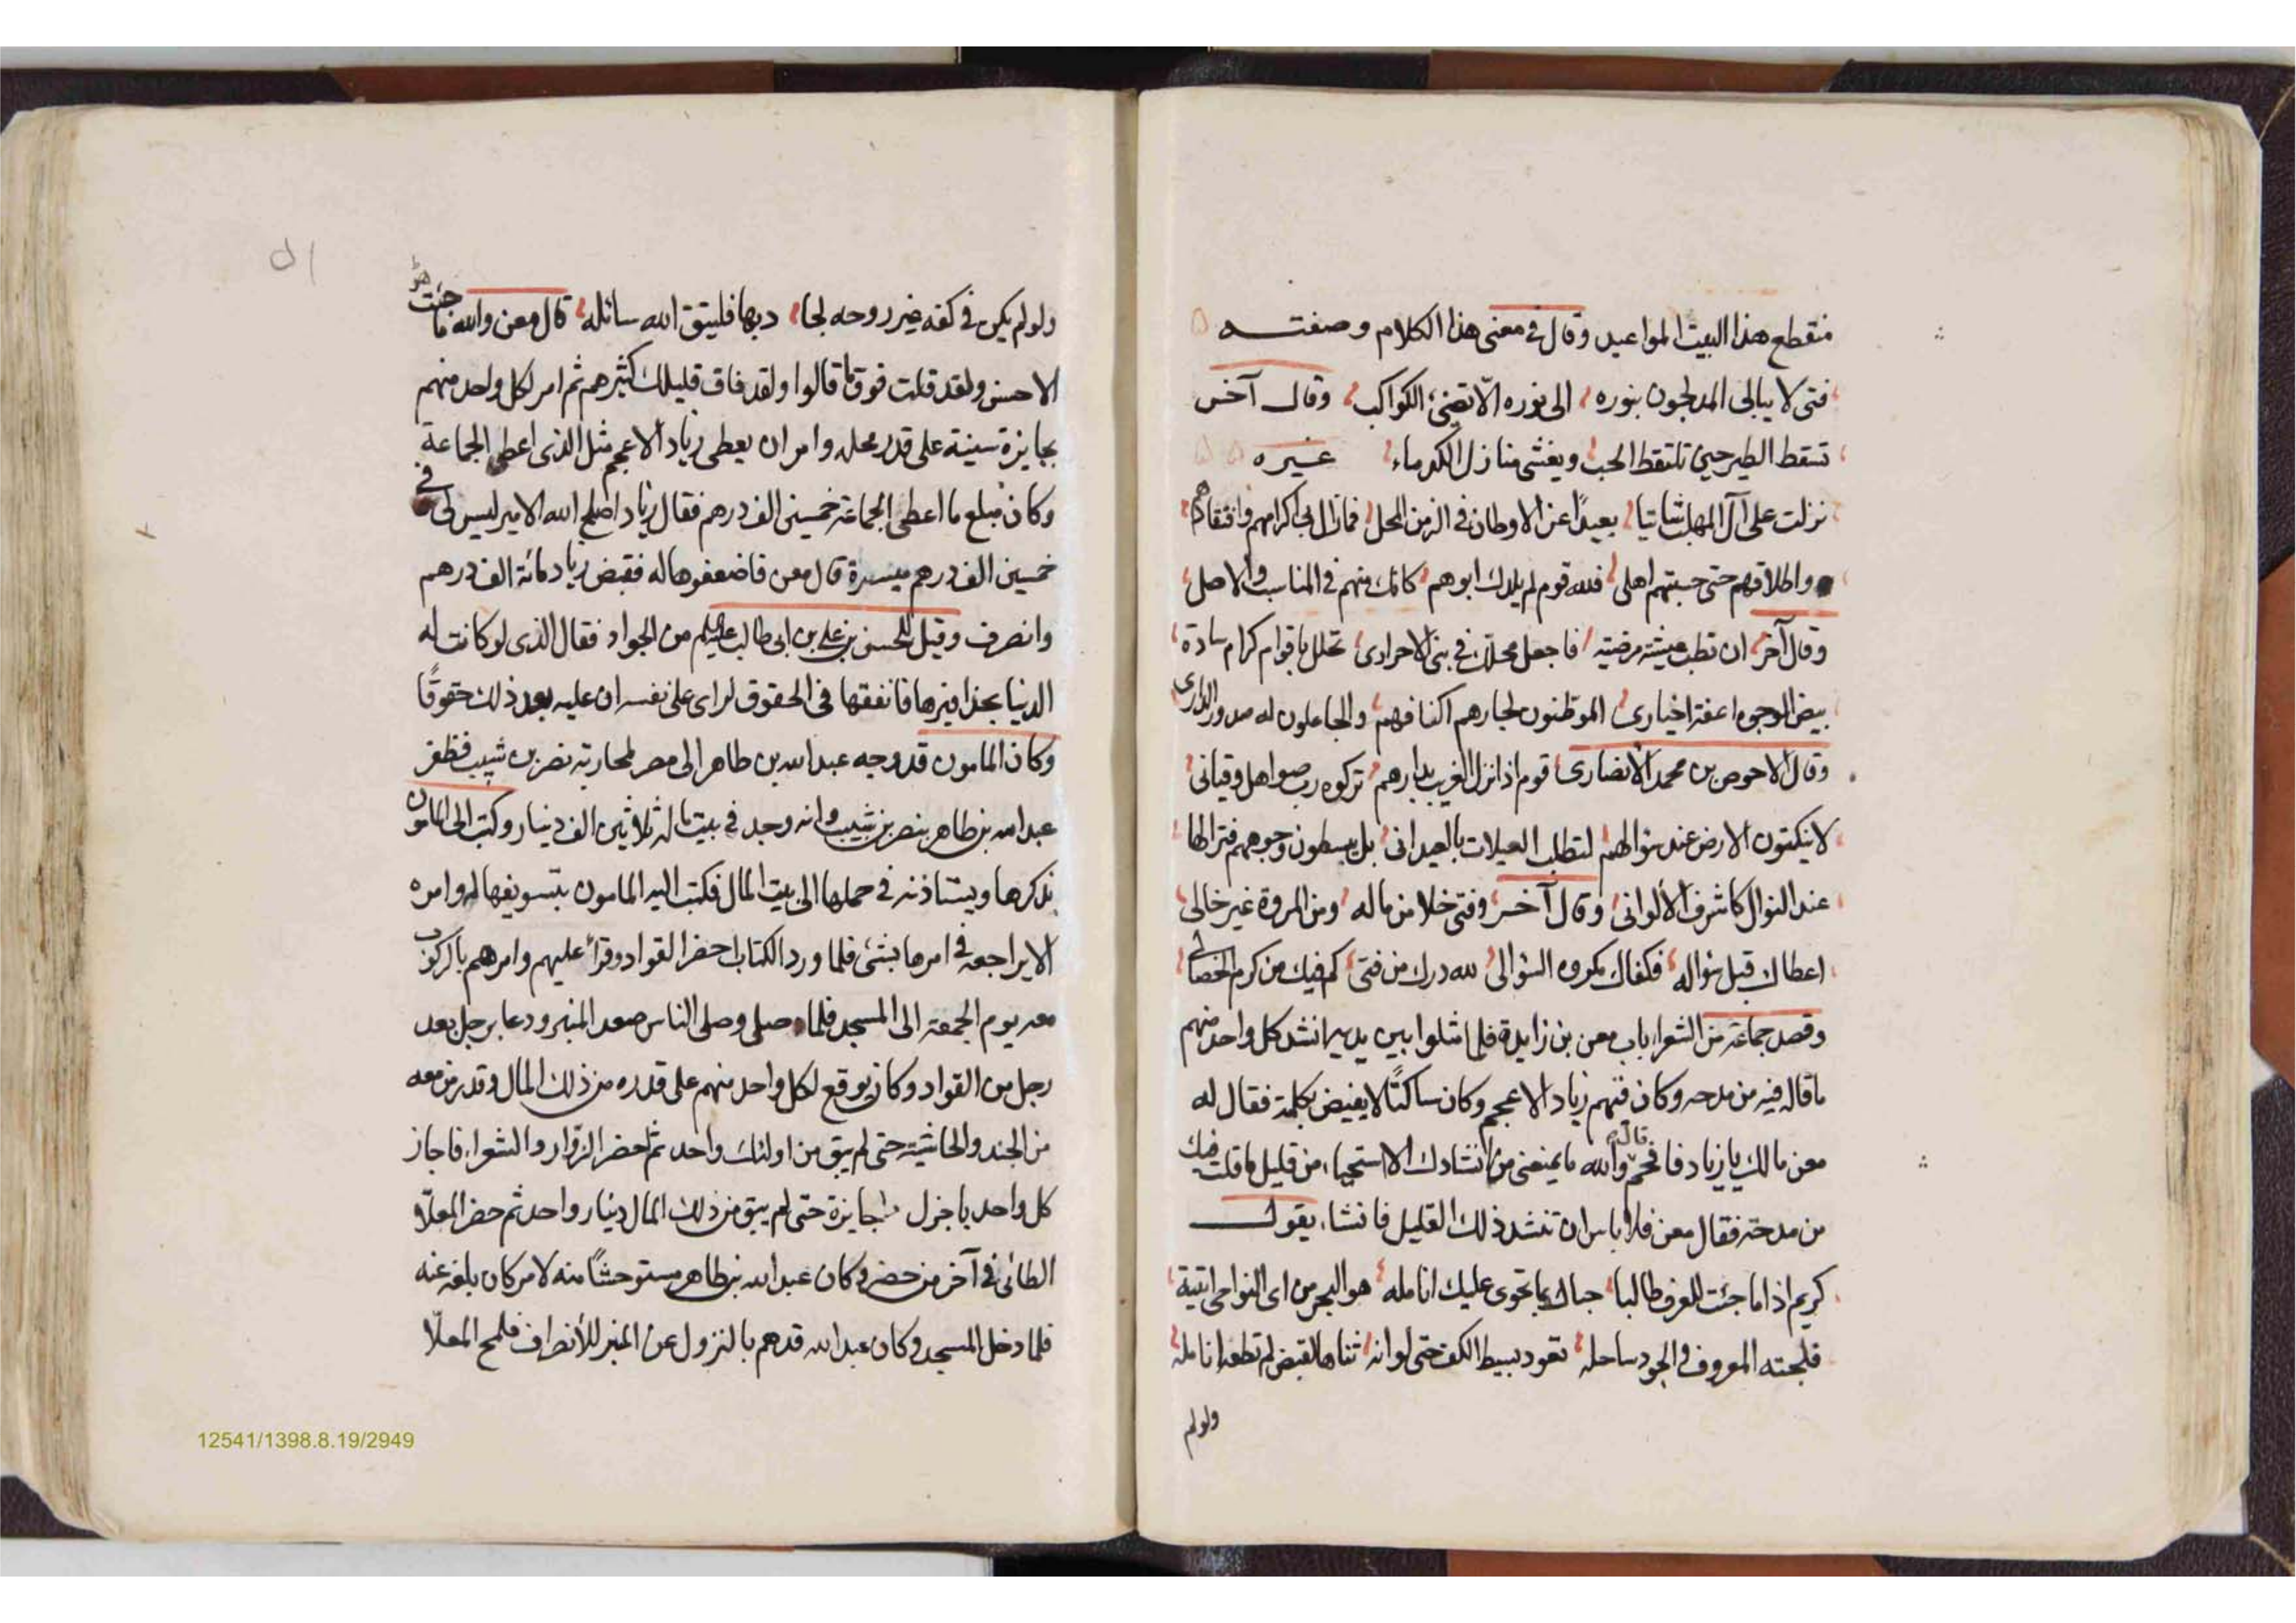 منقطع هذا البيت المواعيد وقال في معنى هذا الكلام وصفتــه
فتى لا يبالي المدلجون بنوره الى نوره الّا تضئ الكواكب وقال آخر
تسقط الطير حين تلتقط الحب ويغشى منازل الكرماء غيره
نزلت على آل المهلب شاتيا بعيدًا عن الاوطان في الزمن المحل فمازال بي اكرامهم وافتقادهم
واطلاقهم حتى حسبتهم اهلي فلله قوم لم يلدك ابوهم كانك منهم في المناسب والاصل
وقال آخر ان تطب عيشته مرضيته فاجعل محلك في بني الاحراري تحلل باقوام كرام سادة
بيض الوجوه اعفة اخياري الموطنون لجارهم اكنافهم والجاعلون له صدور الداري
وقال الاحوص بن محمد الانصاري قوم اذا نزل الغريب بدارهم تركوه رب صواهل وقياني
لا ينكتون الارض عند سؤالهم لتطلب العيلات بالعيداني بل يبسطون وجوههم فترالها
عند النوال كاشرف الألواني وقال آخر وفتى خلا من ماله ومن المروة غير خالي
اعطاك قبل سؤاله فكفاك مكروه السؤالي لله درك من فتى كم فيك من كرم الخصالي
وقصد جماعة من الشعراء باب معن بن زايدة فلما مثلوا بين يديه انشد كل واحد منهم
ما قاله فيه من مدحه وكان فيهم زياد الاعجم وكان ساكتًا لا يفيض بكلمة فقال له
معن مالك يا زياد فافحم قال والله ما يمنعني من انشادك الا استحياء من قليل ما قلت فيك
من مدحته فقال معن فلا باس ان تنشد ذلك القليل فانشاء يقول
كريم اذا ما جئت للعرف طالبا حباك بما تحوى عليك انامله هو البحر من اى النواحي اتيته
فلجته المعروف والجود ساحله تعود بسيط الكف حتى لوانه ثناها لقبض لم تطعه انامله
ولولم
ولولم يكن في كفه غير روحه لجاد بها فليتق الله سائله قال معن والله ما جئت
الا حسن ولقد قلت فوق ما قالوا ولقد فاق قليلك كثيرهم ثم امر لكل واحد منهم
بجايزة سنية على قدر محله وامر ان يعطى زياد الاعجم مثل الذى اعطى الجماعة
وكان مبلغ ما اعطى الجماعة خمسين الف درهم فقال زياد اصلح الله الامير ليس لى في
خمسين الف درهم ميسرة قال معن فاضعفوها له فقبض زياد مائة الف درهم
وانصرف وقيل للحسن بن على بن ابي طالب عليهم من الجواد فقال الذى لو كانت له
الدنيا بحذافيرها فانفقها في الحقوق لراى على نفسه ان عليه بعد ذلك حقوقًا
وكان المامون قد وجه عبد الله بن طاهر الى مصر لمحاربة نصر بن شبيب فظفر
عبد الله بن طاهر بنصر بن شبيب وانه وجد في بيت ماله ثلاثين الف دينار وكتب الى المامون
بذكرها ويستاذنه في حملها الى بيت المال فكتب اليه المامون بتسويغها له وامره
الا يراجعه في امرها بشئ فلما ورد الكتاب احضر القواد وقرأ عليهم وامرهم بالركوب
معه يوم الجمعة الى المسجد فلما صلى وصلى الناس صعد المنبر ودعا برجل بعد
رجل من القواد وكان يوقع لكل واحد منهم على قدره من ذلك المال وقدر من معه
من الجند والحاشية حتى لم يبق من اولئك واحد ثم احضر الزوار والشعراء فاجاز
كل واحد باجزل جايزة حتى لم يبق من ذلك المال دينار واحد ثم حضر المعلّا
الطائى في آخر من حضر وكان عبد الله بن طاهر مستوحشًا منه لامر كان بلغه عنه
فلما دخل المسجد وكان عبد الله قد هم بالنزول عن المنبر للأنصراف فلمح المعلّا
12541/1398.8.19/2949